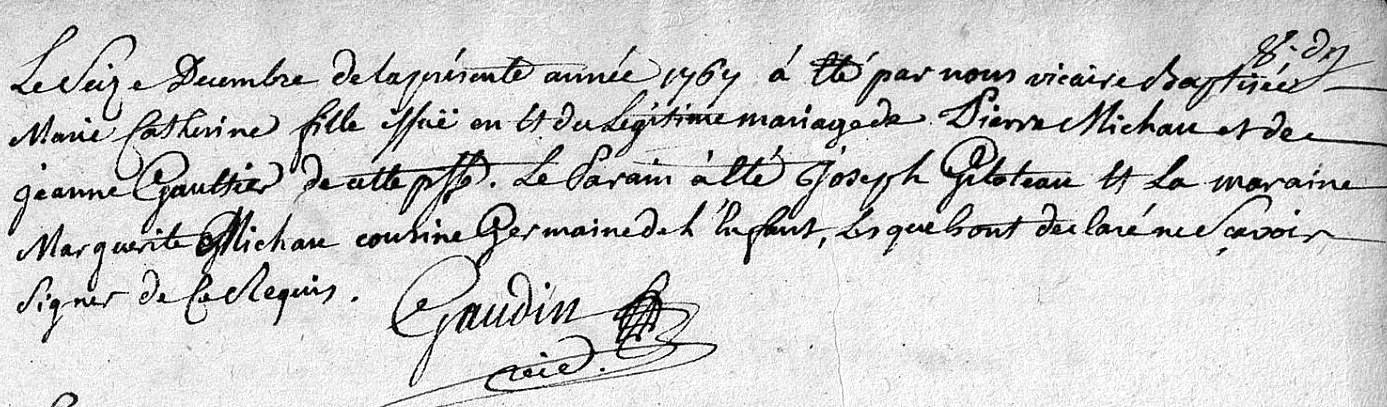 Le Seize Decembre de la présente année 1767 à été par nous vicaire Baptisée
Marie Catherine fille issuë en et du Légitime mariage de Pierre Michau et de
jeanne Gaultier de cette psse. Le Parain à été Joseph Giloteau et La maraine
Marguerite Michau cousine Germaine de L'Enfant, Lesquels ont declaré ne Sçavoir
Signer de Ce Requis.
Gaudin
vic.